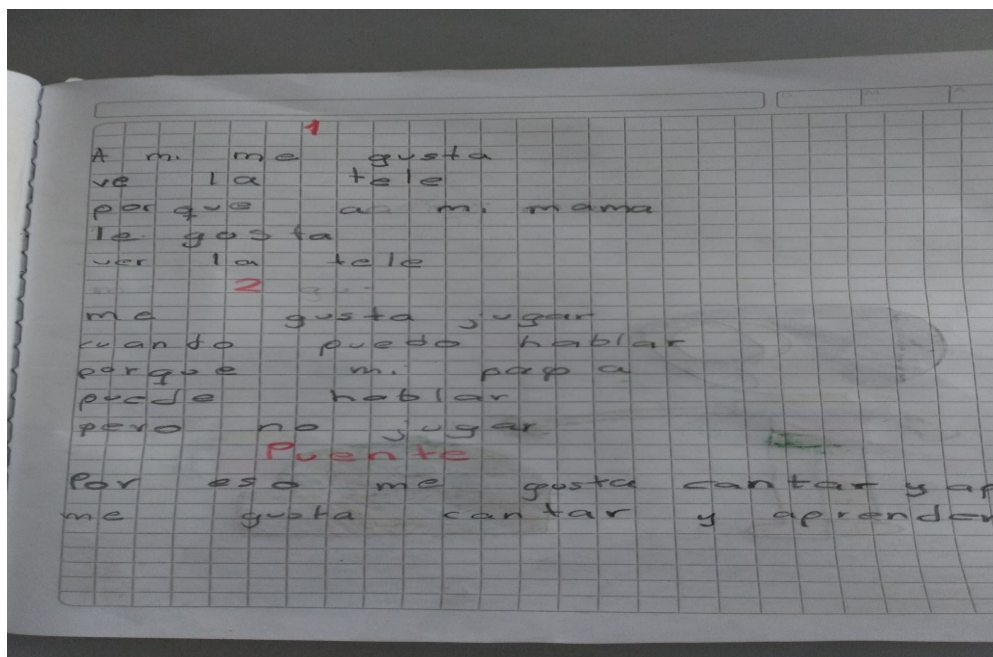 1
A mi me gusta
ve la tele
por que aa mi mama
le gosta
ver la tele
2
me gusta jugar
cuando puedo hablar
porque mi papa
puede hablar
pero no jugar
Puente
Por eso me gusta cantar y ap
me gusta cantar y aprender